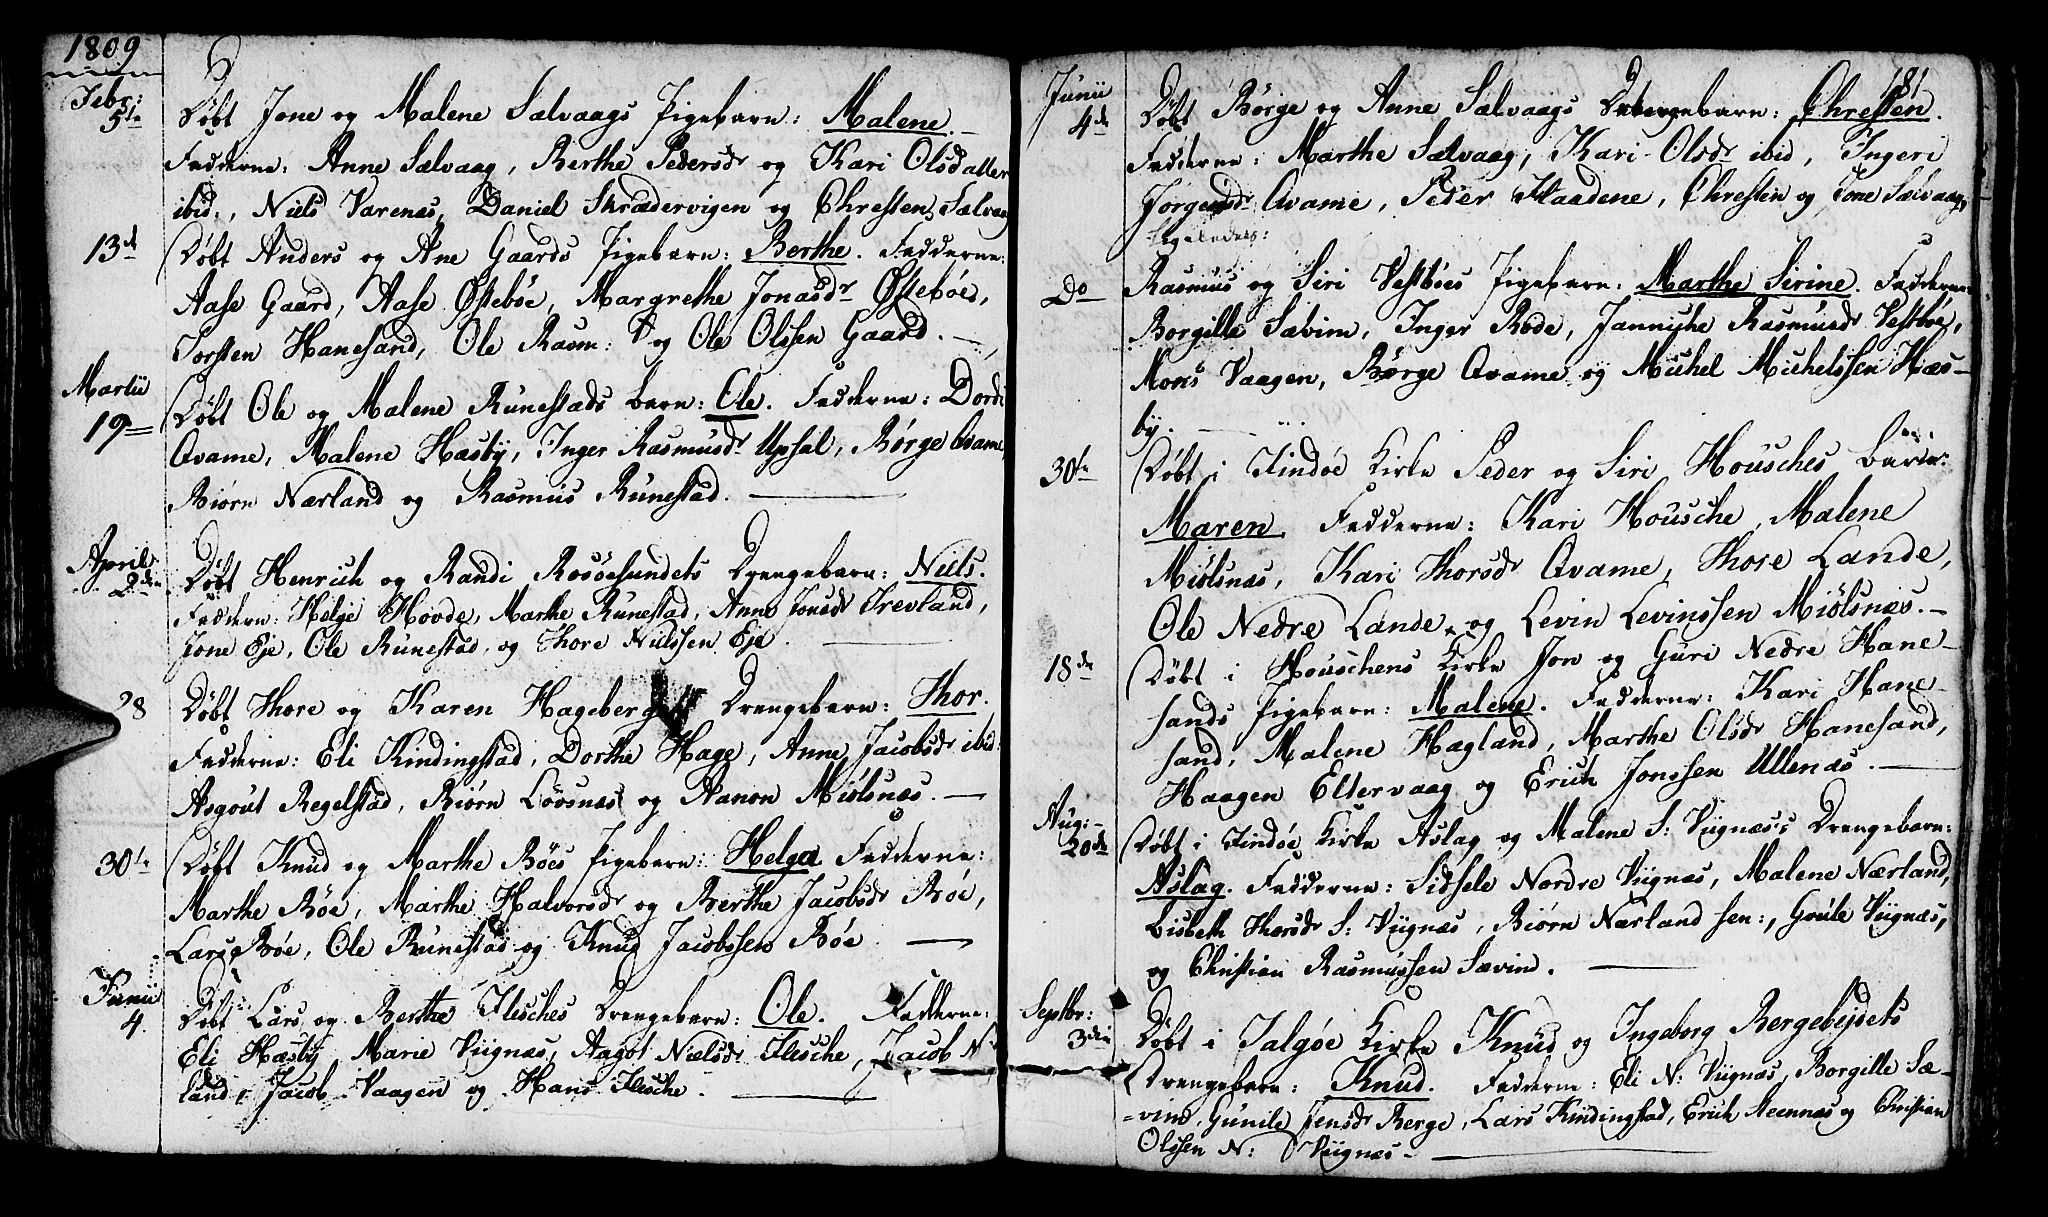 1809
Febr:
5te Døbt Jone og Malene Sælvaags Pigebarn: Malene. –
Fadderne: Anne Sælvaag, Berthe Pedersdr og Kari Olsdatter
ibid:, Niels Varenæs, Daniel Skrædervigen og Chresten Sælvaag
13de Døbt Anders og Ane Gaards Pigebarn: Berthe. Fadderne:
Aase Gaard, Aase Østebøe, Margrethe Jonasdr Østebøe,
Torsten Hanesand, Ole Ravn: og Ole Olssen Gaard. –
Martii
19 Døbt Ole og Malene Runestads barn: Ole. Fadderne: Dordi
Qvame, Malene Hæsby, Inger Rasmusdr Upsal, Børge Qvame,
Biørn Nærland og Rasmus Runestad.
April
2den Døbt Henrich og Randi Rosøesundets Drengebarn: Niels.
Faddern: Helge Hovde, Marthe Runestad, Anne Jonsdr Trevland,
Jone Øje, Ole Runestad, og Thore Nielssen Øje.
28 Døbt Thore og Karen Hageberg Drengebarn: Thor.
Fadderne: Eli Kindingstad, Dorthe Hage, Anne Jacobsdr ibid:
Asgout Regelstad, Biørn Løvsnæs og Aanon Miølsnæs. –
30te Døbt Knud og Marthe Bøes Pigebarn: Helga Fadderne:
Marthe Bøe, Marthe Halvorsdr og Berthe Jacobsdr Bøe,
Lars Bøe, Ole Runestad og Knud Jacobssen Bøe. –
Junii
4. Døbt Lars og Berthe Flesches Drengebarn: Ole. Fadderne:
Eli Hæsby, Marie Viignæs, Aagot Nielsdr Flesche, Jacob N
land, Jacob Vaagen og Hans Flesche.
181
Junii
4de Døbt Børge og Anne Sælvaags Drengebarn: Chresten.
Fadderne: Marthe Sælvaag, Kari Olsdr ibid, Ingeri
Jørgensdr Qvame, Peder Haadene, Chresten og Jone Sælvaag,
ligeledes:
Do Rasmus og Siri Vestbøes Pigebarn: Marthe Sirine. Fadderne:
Borgille Sævim, Inger Rode, Jannishe Rasmusdr Vestbøe,
Mons Vaagen, Børge Qvame og Michel Michelssen Hæs–
by.
30te Døbt i Findøe Kirke Peder og Siri Housches barn:
Maren. Fadderne: Kari Housche, Malene
Miølsnæs, Kari Thorsdr Qvame, Thore Lande,
Ole Nedre Lande, og Levin Levinssen Miølsnæs. –
18de Døbt i Houschens Kirke Jon og Guri Nedre Hane–
sands Pigebarn: Malene. Fadderne: Kari Hane–
sand, Malene Hagland, Marthe Olsdr Hanesand,
Haagen Eltervaag og Erich Jonssen Ullenæs.
Aug:
20de Døbt i Findøe Kirke Aslag og Malene S: Viignæs's Drengebarn:
Aslag. Fadderne: Sidsele Nordre Viignæs, Malene Nærland,
Lisbeth Thorsdr S: Viignæs, Biørn Nærland sen:, Goule Viignæs,
og Christian Rasmussen Sævind.
Septbr:
3die Døbt i Talgøe Kirke Knud og Ingeborg Bergebejsets
Drengebarn: Knud. Fadderne: Eli N: Viignæs, Borgille Sæ–
vind, Gunile Jensdr Berge, Lars Kindingstad, Erich Steennæs og Christian
Olssen N: Viignæs –